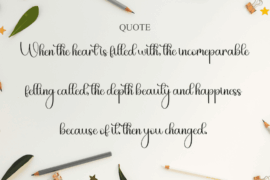 QUOTE
When the heart is filled with, the incomeparable
felling called, the depth beauty and happiness
because of it, then you changed.